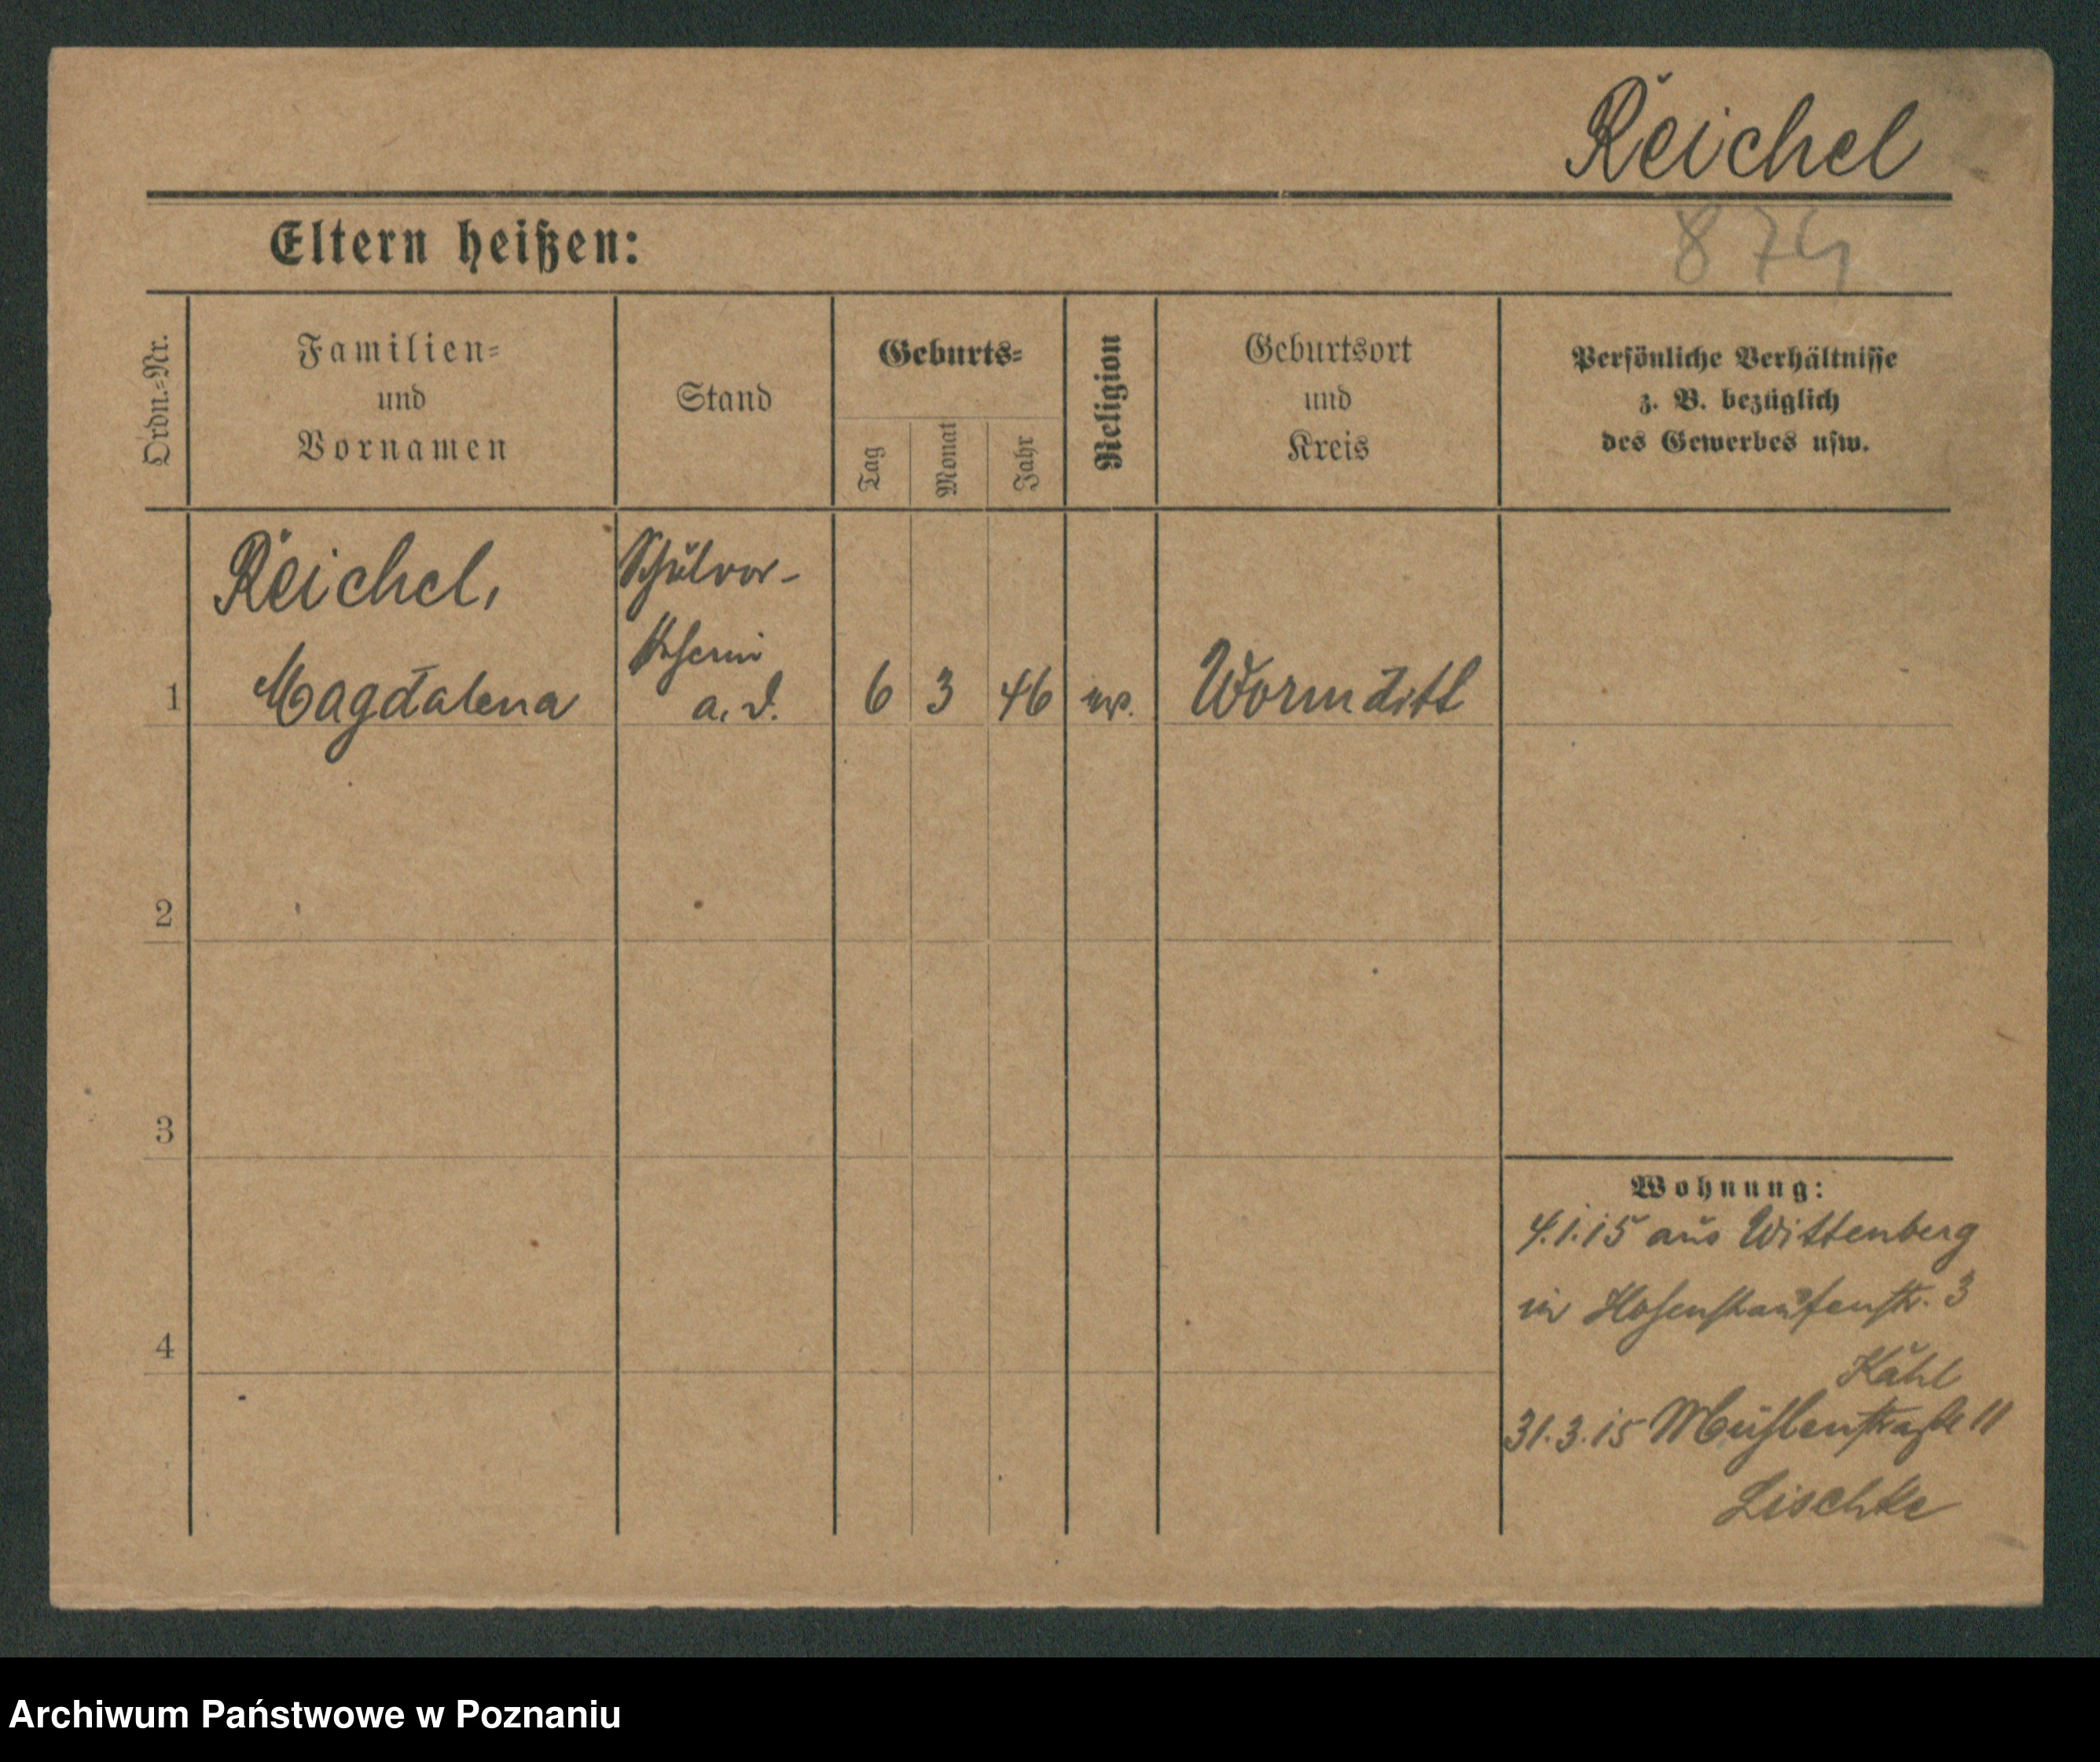 Reichel
Eltern heißen:
874
Ordn.-Nr.
Familien-
und
Vornamen
Stand
Geburts-
Tag
Monat
Jahr
Religion
Geburtsort
und
Kreis
Persönliche Verhältnisse
z. B. bezüglich
des Gewerbes usw.
Reichel,
Schulvor-
steherin
1 Magdalena a. D. 6 3 46 ev. Wormditt
2
3
4
Wohnung:
4.1.15 aus Wittenberg
in Hohenstaufenstr. 3
31.3.15 Mühlenstraße 11
Lischke